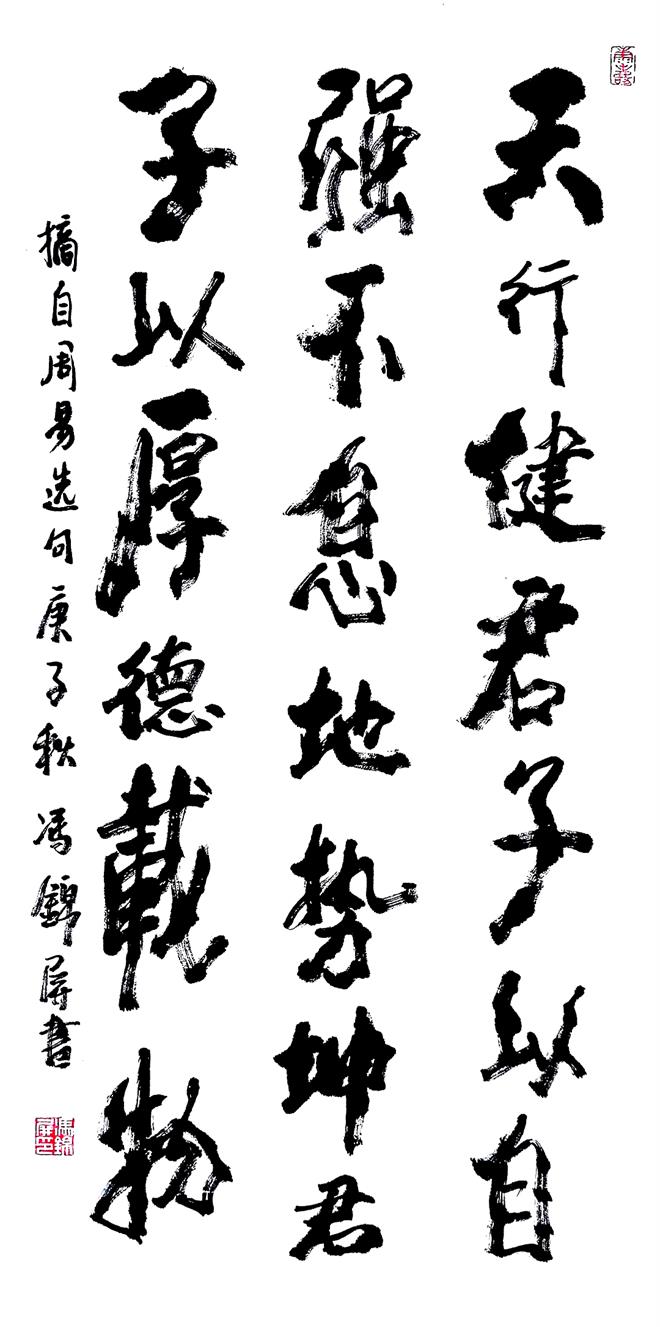 天行健君子以自
强不息地势坤君
子以厚德載物
摘自周易选句庚子秋冯錦屏書